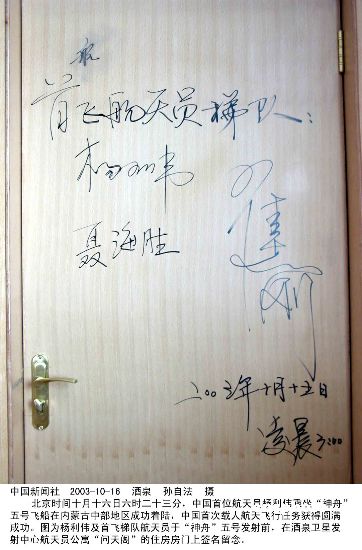 航
首飞航天员梯队：
杨利伟
翟志刚
聂海胜
二〇〇三年十月十五日
凌晨3:00
中国新闻社 2003-10-16 酒泉 孙自法 摄
北京时间十月十六日六时二十三分，中国首位航天员杨利伟乘坐“神舟”
五号飞船在内蒙古中部地区成功着陆，中国首次载人航天飞行任务获得圆满
成功。图为杨利伟及首飞梯队航天员于“神舟”五号发射前，在酒泉卫星发
射中心航天员公寓“问天阁”的住房房门上签名留念。